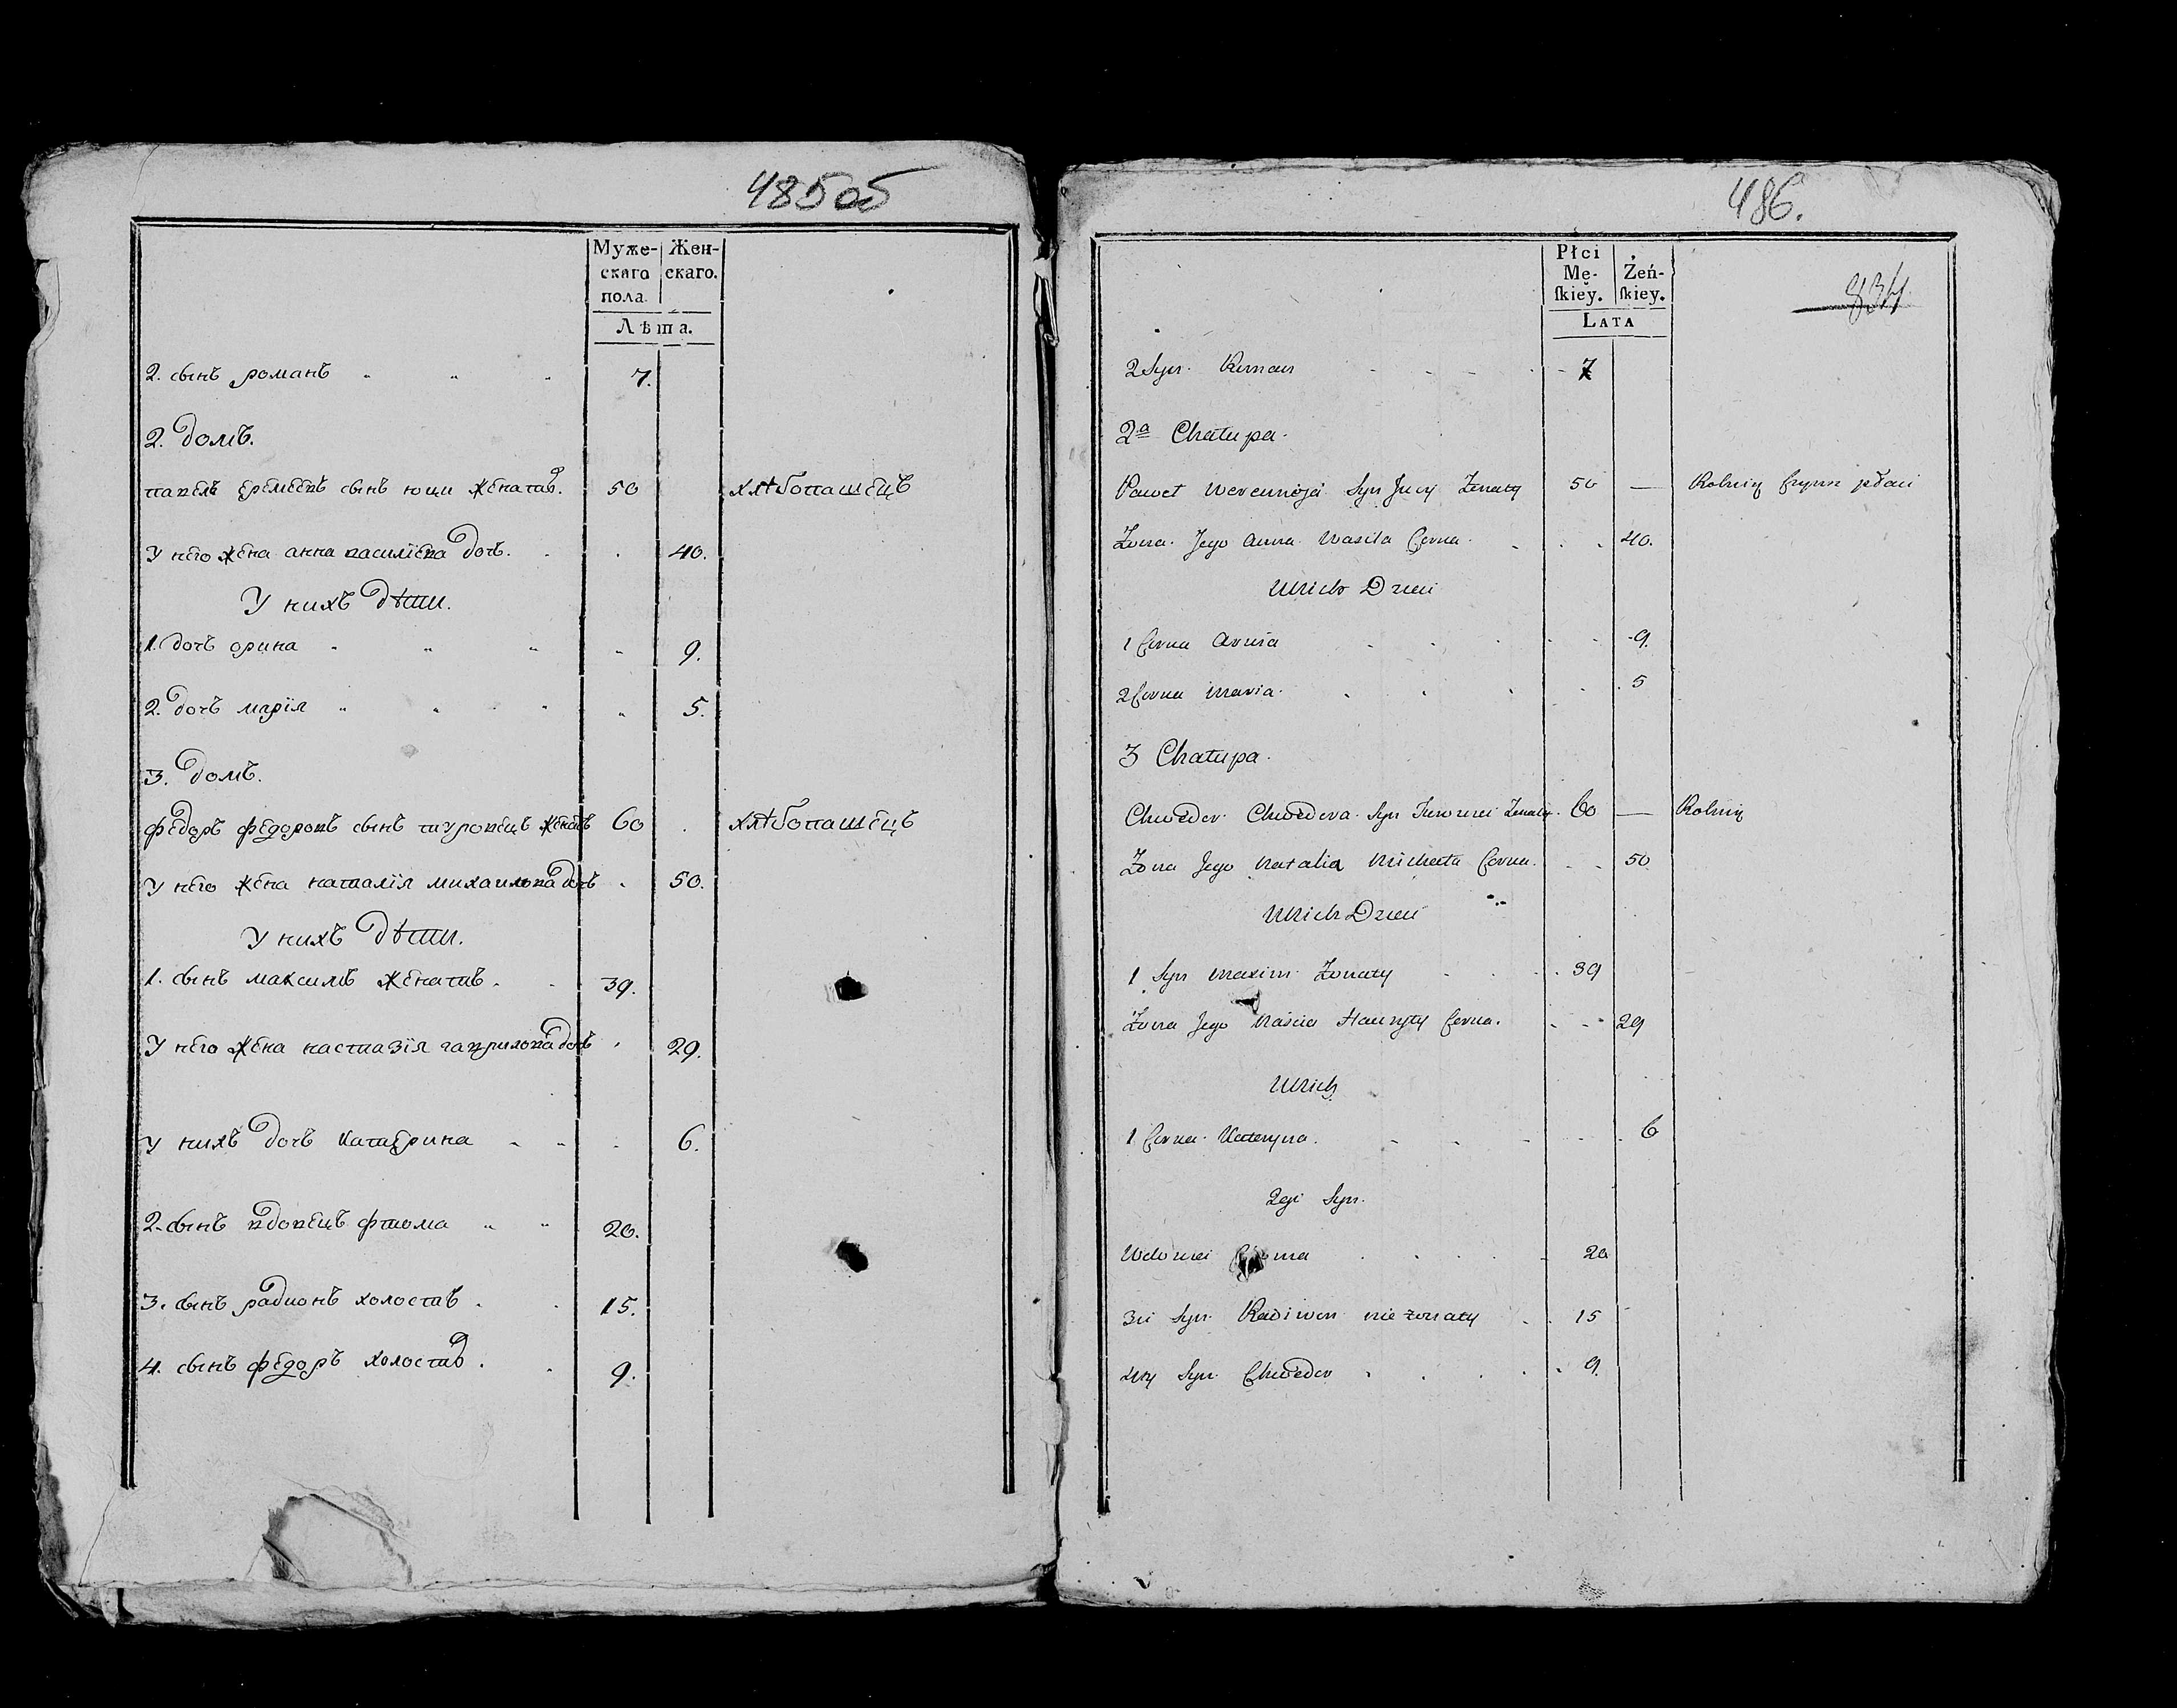 485об
Муже- Жен-
скаго скаго.
пола.
Лѣта.
2. сынъ романъ 7.
2. домъ.
павелъ еремеевъ сынъ юци женатъ. 50 хлѣбопашецъ
У него жена анна василіева дочь. 40.
У нихъ дѣти.
1. дочь орина 9.
2. дочь марія 5.
3. домъ.
федоръ федоровъ сынъ туровецъ женатъ 60 хлѣбопашецъ
У него жена наталія михаилова дочь 50.
У нихъ дѣти.
1. сынъ максимъ женатъ. 39.
У него жена настазія гаврилова дочь 29.
У нихъ дочь катерина 6.
2. сынъ вдовецъ фтома 20.
3. сынъ радионъ холостъ. 15.
4. сынъ федоръ холостъ. 9.
486.
834
Płci
Mę- Żeń-
skiey. skiey.
LATA
2 Syn. Roman 7
2a Chałupa.
Paweł Syn Żenaty 50 — Rolnik
Żona Jego Anna Wasila Corna 40.
U nich Dzieci
1 Corna 9.
2 Corna Maria. 5
3 Chałupa.
Chwedor Chwedora Syn Żenaty. 60 — Rolnik
Żona Jego Natalia Michała Corna. 50
U nich Dzieci
1 Syn Maxim Żonaty 39
Żona Jego Naścia Hauryły Corna. 29
U nich
1 Corna Kateryna. 6
2gi Syn.
20
3ci Syn Radiwon nie żonaty 15
4ty Syn Chwedor 9.